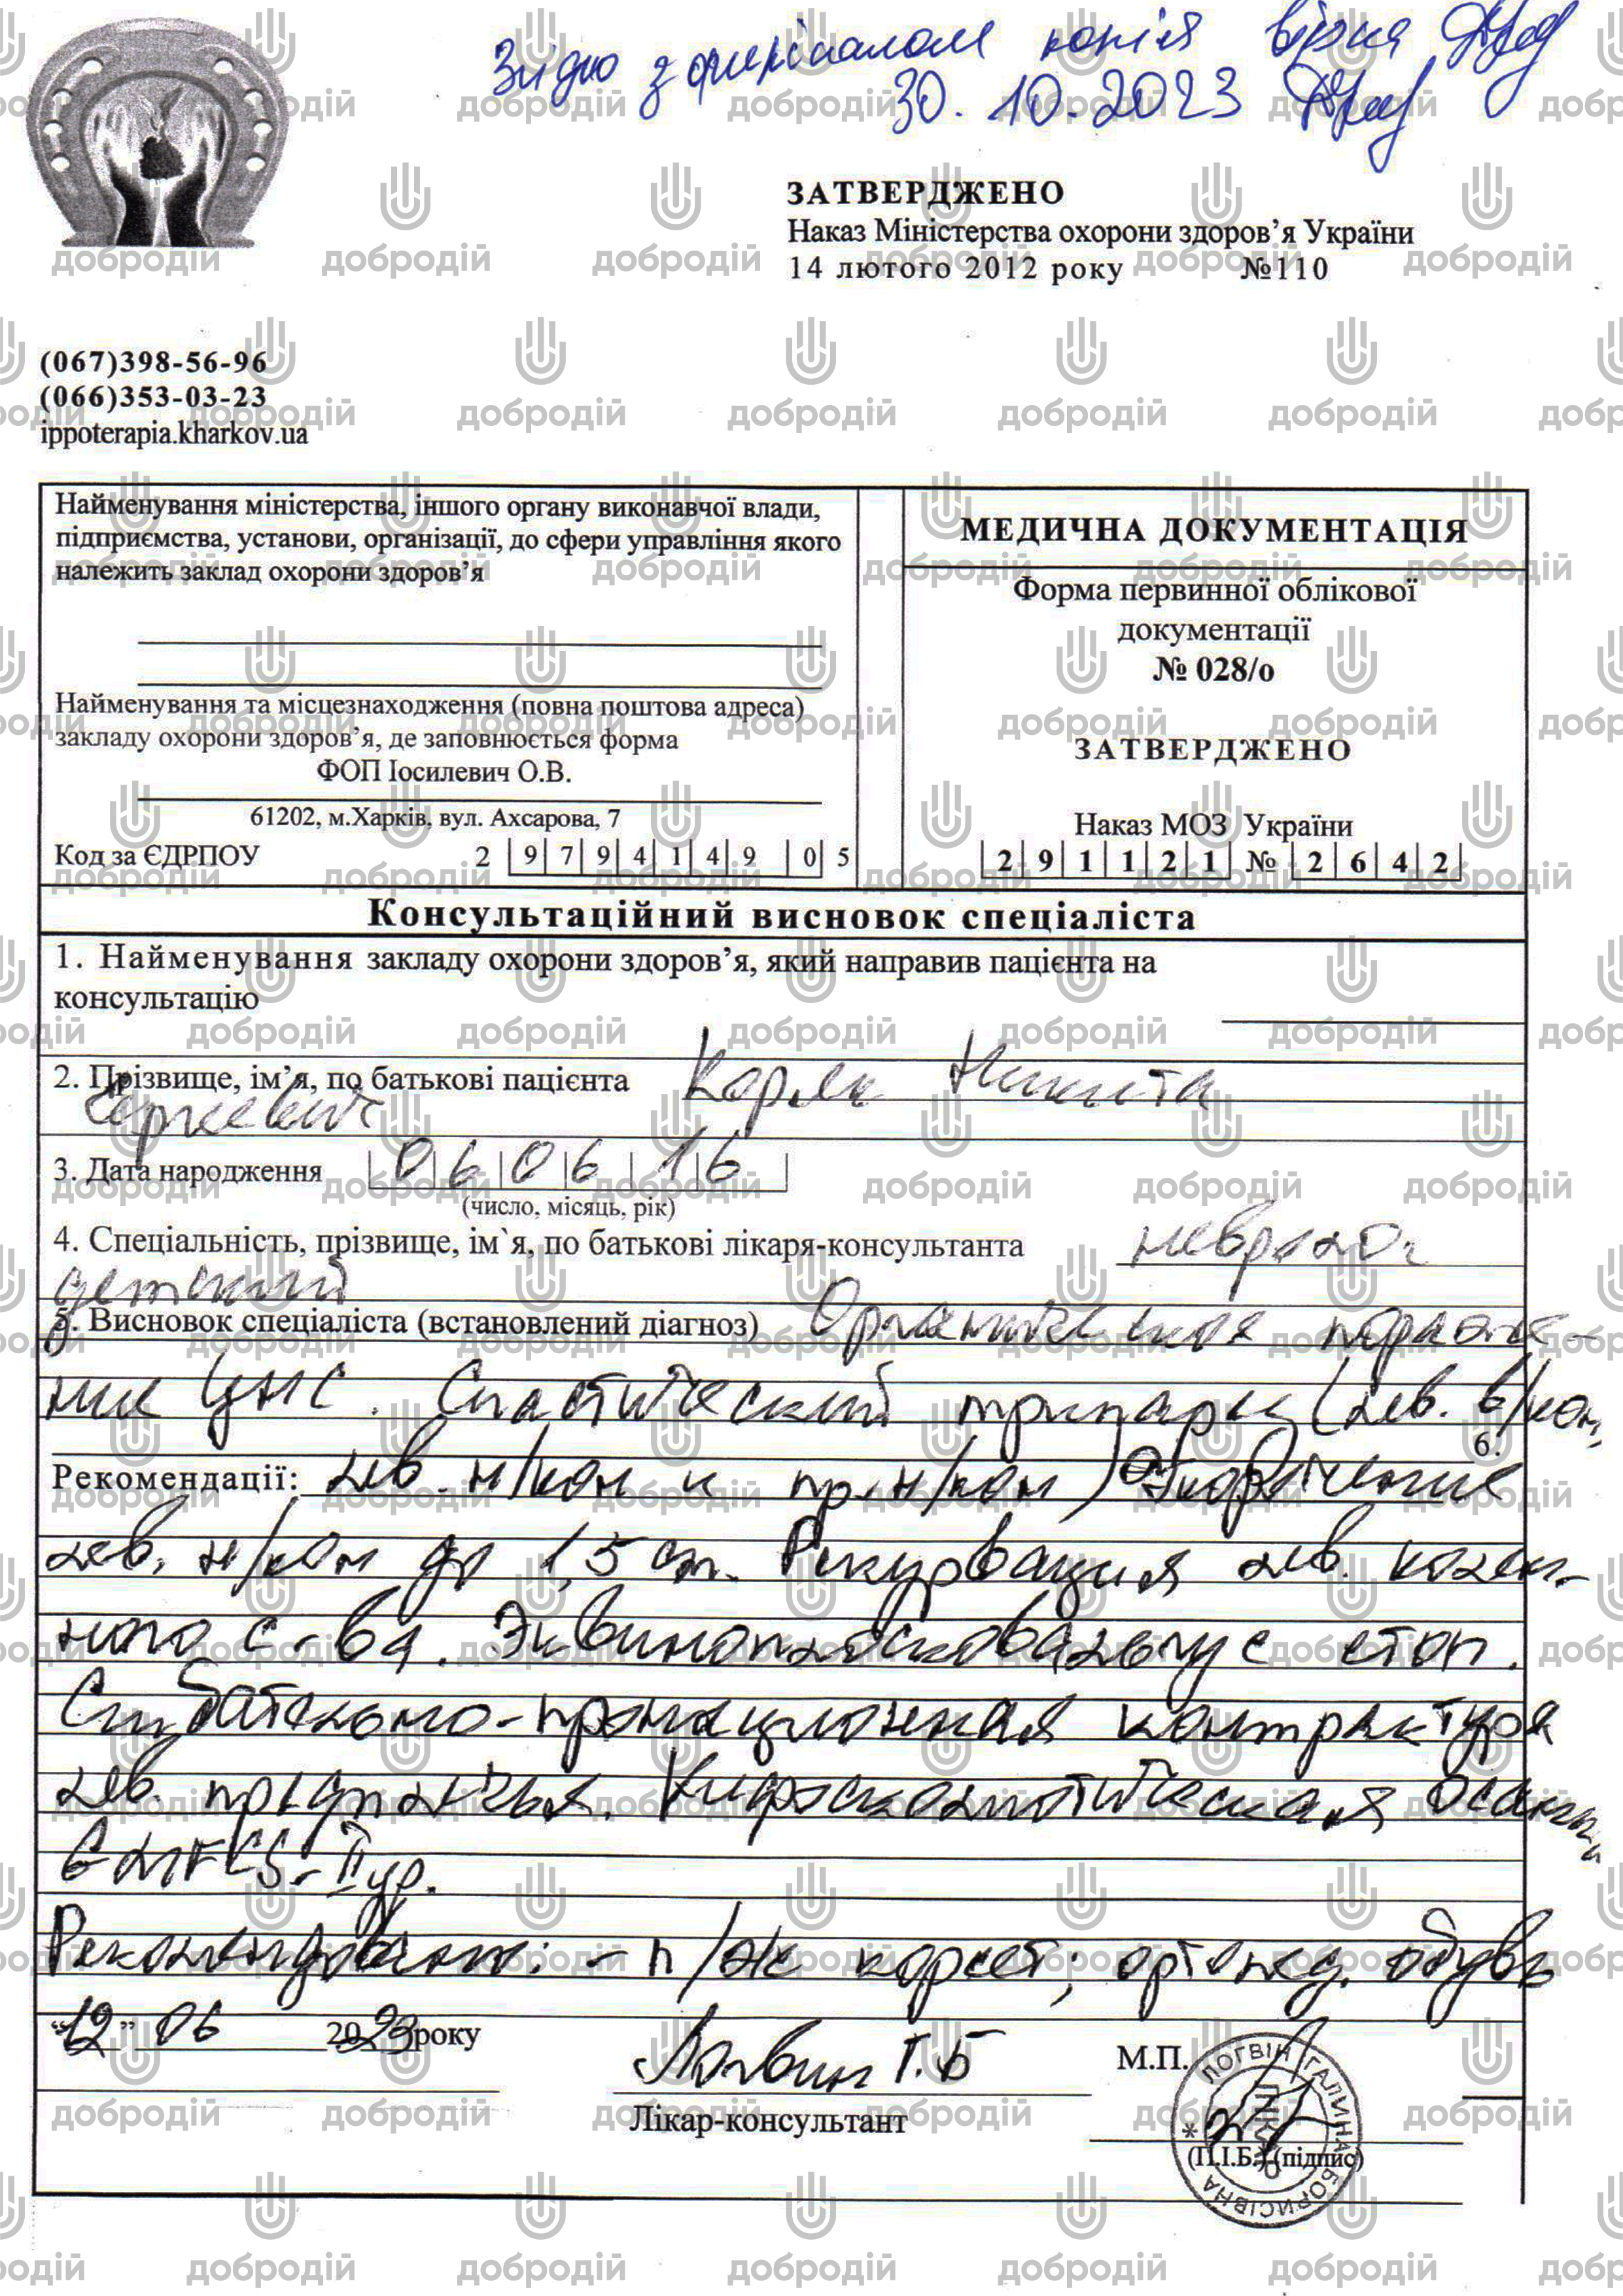 Згідно з оригіналом копія вірна
30.10.2023
ЗАТВЕРДЖЕНО
Наказ Міністерства охорони здоров’я України
14 лютого 2012 року №110
(067)398-56-96
(066)353-03-23
ippoterapia.kharkov.ua
Найменування міністерства, іншого органу виконавчої влади,
підприємства, установи, організації, до сфери управління якого
належить заклад охорони здоров’я
Найменування та місцезнаходження (повна поштова адреса)
закладу охорони здоров’я, де заповнюється форма
ФОП Іосилевич О.В.
61202, м.Харків, вул. Ахсарова, 7
Код за ЄДРПОУ 2 9 7 9 4 1 4 9 0 5
МЕДИЧНА ДОКУМЕНТАЦІЯ
Форма первинної облікової
документації
№ 028/о
ЗАТВЕРДЖЕНО
Наказ МОЗ України
2 9 1 1 2 1 № 2 6 4 2
Консультаційний висновок спеціаліста
1. Найменування закладу охорони здоров’я, який направив пацієнта на
консультацію
2. Прізвище, ім’я, по батькові пацієнта Коряк Никита
Сергеевич
3. Дата народження 0 6 0 6 1 6
(число, місяць, рік)
4. Спеціальність, прізвище, ім`я, по батькові лікаря-консультанта невролог
детский
5. Висновок спеціаліста (встановлений діагноз) Органическое пораже-
ние ЦНС. Спастический трипарез (лев. в/кон,
6.
Рекомендації: лев. н/кон и пр. н/кон) Укорочение
лев. н/кон до 1,5 см. Рекурвация лев. колен-
ного с-ва. Эквиноплосковальгус стоп.
Сгибательно-пронационная контрактура
лев. предплечья. Кифосколиотическая осанка
GMFCS-II ур.
Рекомендовано: - п/ж корсет; ортопед. обувь
“12” 06 2023 року
Логвин Г.Б
М.П.
Лікар-консультант
(П.І.Б.) (підпис)
ЛОГВІН ГАЛИНА БОРИСІВНА
ЛІКАР
добродій